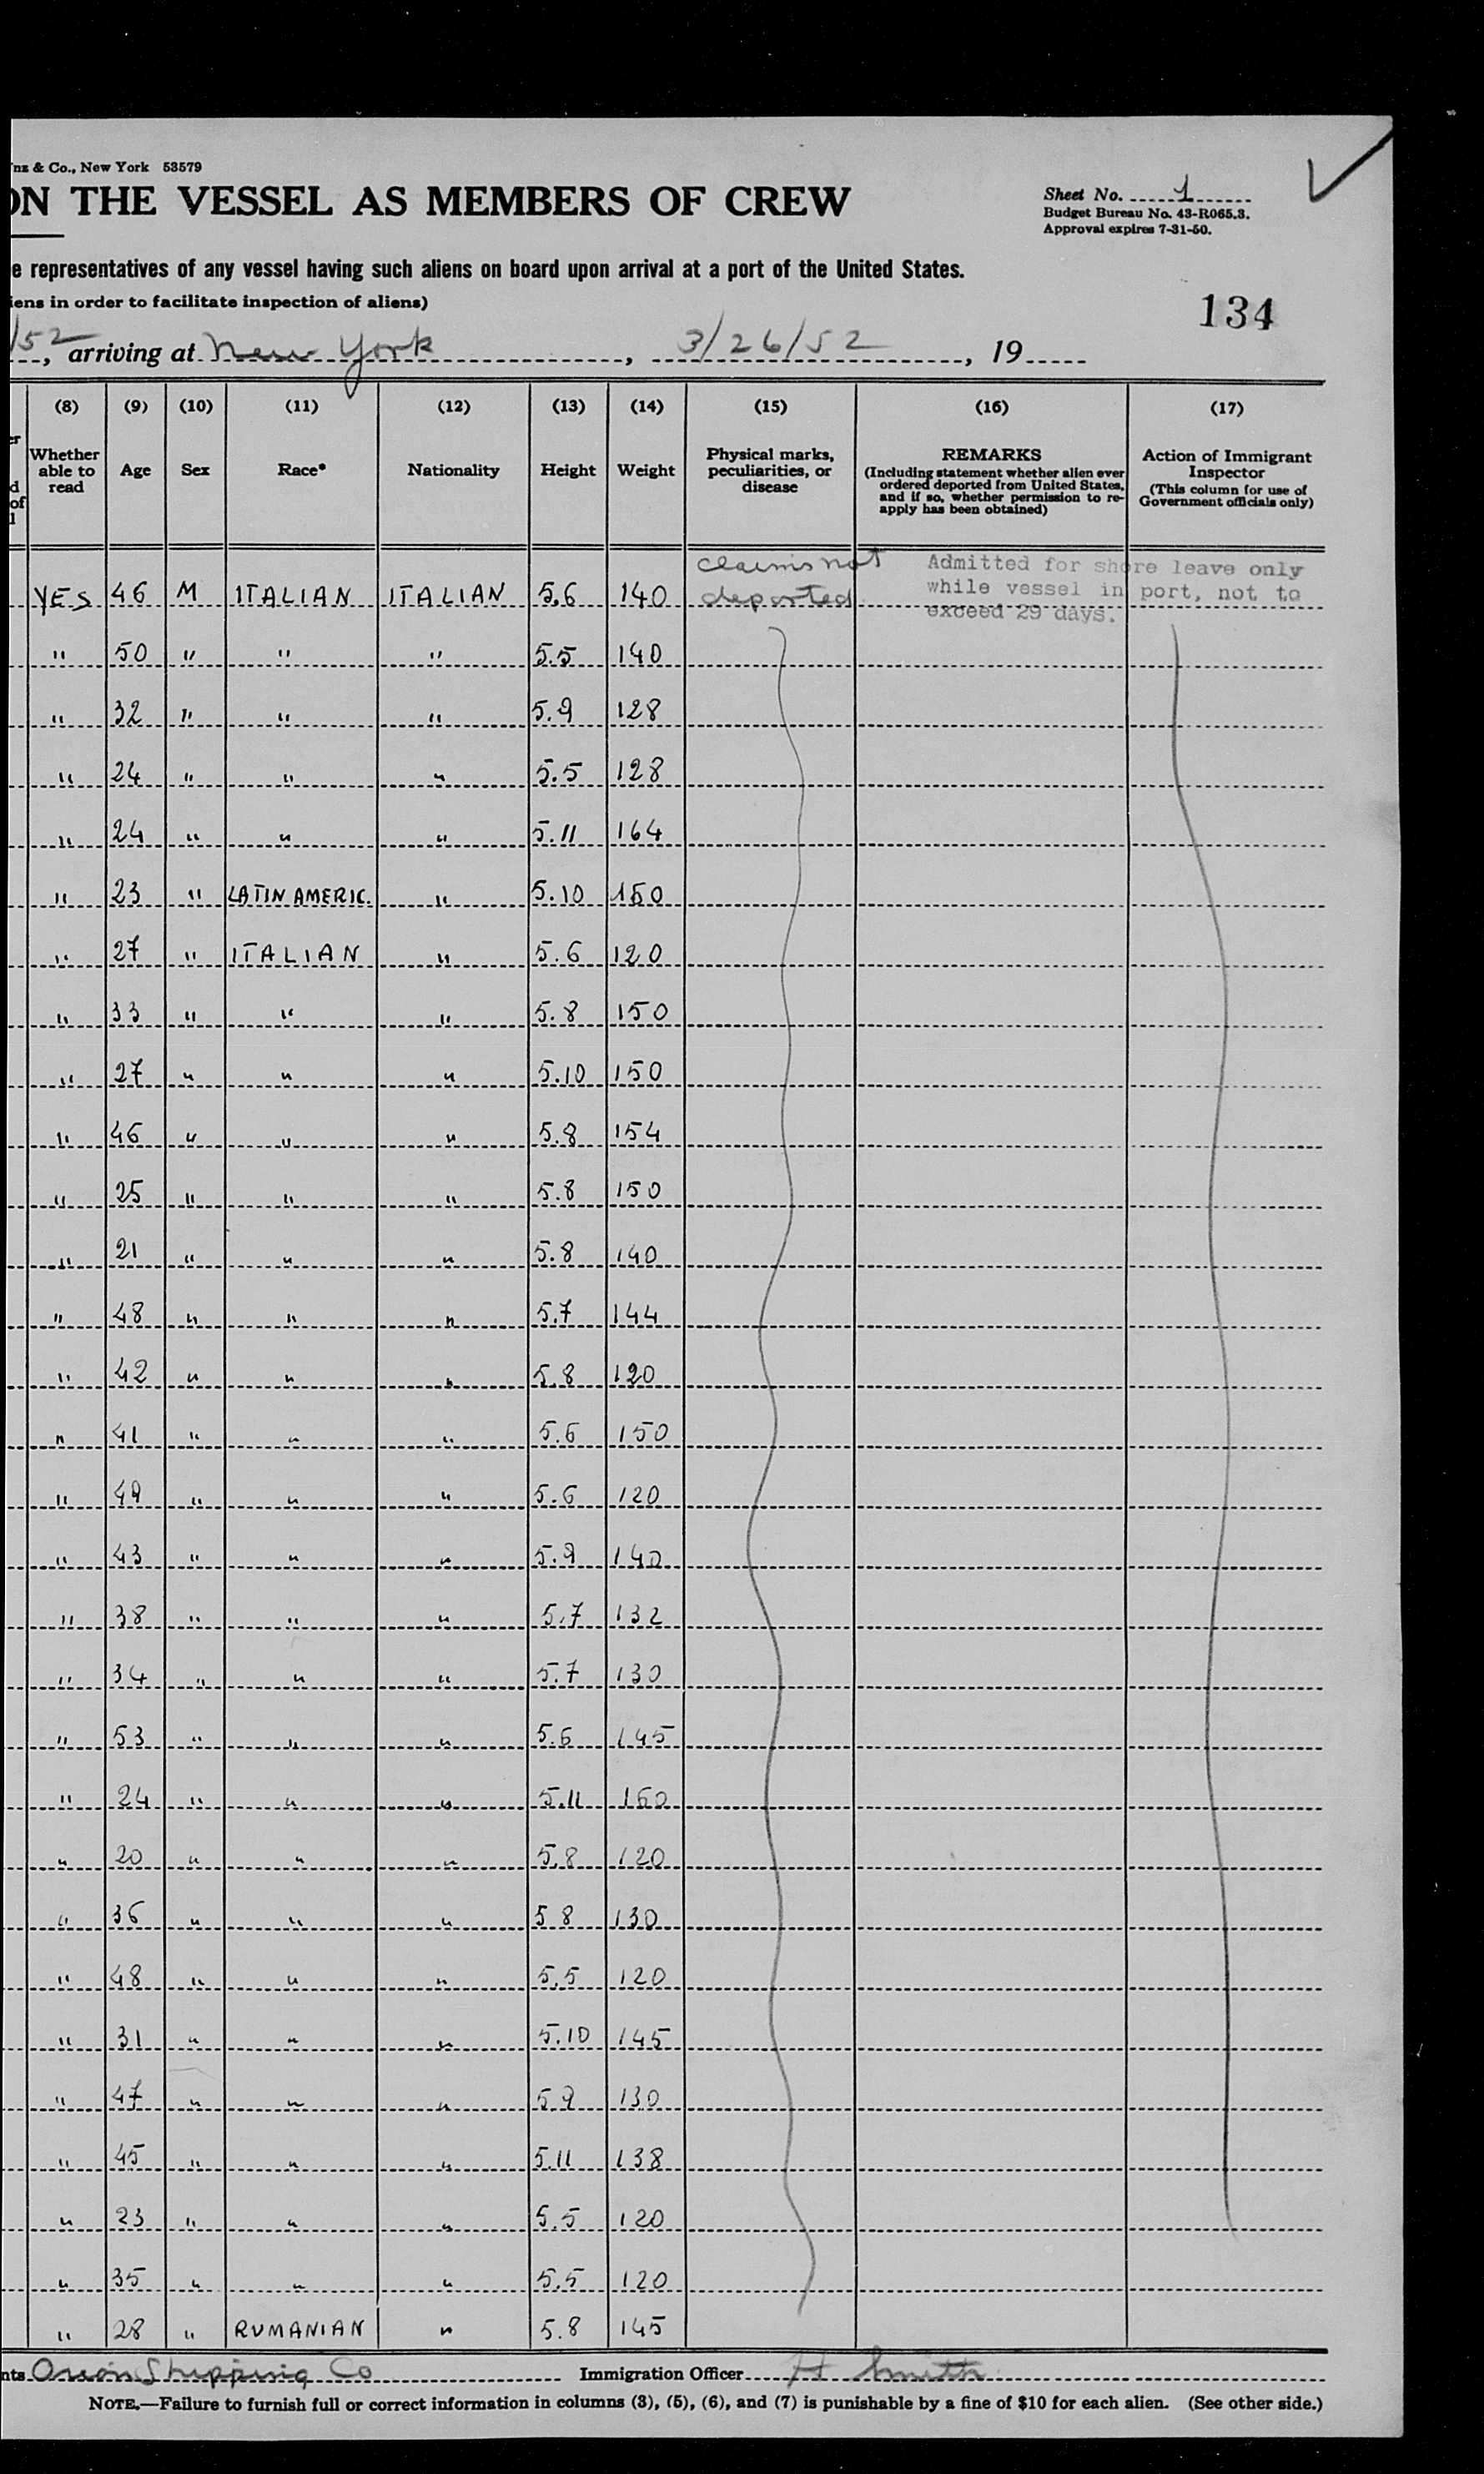 nz & Co., New York 53579
ON THE VESSEL AS MEMBERS OF CREW
Sheet No. 1
Budget Bureau No. 43-R065.3.
Approval expires 7-31-50.
e representatives of any vessel having such aliens on board upon arrival at a port of the United States.
iens in order to facilitate inspection of aliens)
134
/52, arriving at New York, 3/26/52, 19
(8) (9) (10) (11) (12) (13) (14) (15) (16) (17)
er
d
of
l
Whether able to read Age Sex Race* Nationality Height Weight Physical marks, peculiarities, or disease REMARKS (Including statement whether alien ever ordered deported from United States, and if so, whether permission to re-apply has been obtained) Action of Immigrant Inspector (This column for use of Government officials only)
claims not deported
Admitted for shore leave only
while vessel in port, not to
exceed 29 days.
YES 46 M ITALIAN ITALIAN 5.6 140
" 50 " " " 5.5 140
" 32 " " " 5.9 128
" 24 " " " 5.5 128
" 24 " " " 5.11 164
" 23 " LATIN AMERIC. " 5.10 150
" 27 " ITALIAN " 5.6 120
" 33 " " " 5.8 150
" 27 " " " 5.10 150
" 46 " " " 5.8 154
" 25 " " " 5.8 150
" 21 " " " 5.8 140
" 48 " " " 5.7 144
" 42 " " " 5.8 120
" 41 " " " 5.6 150
" 49 " " " 5.6 120
" 43 " " " 5.9 140
" 38 " " " 5.7 132
" 34 " " " 5.7 130
" 53 " " " 5.6 145
" 24 " " " 5.11 160
" 20 " " " 5.8 120
" 36 " " " 5 8 130
" 48 " " " 5.5 120
" 31 " " " 5.10 145
" 47 " " " 5.9 130
" 45 " " " 5.11 138
" 23 " " " 5.5 120
" 35 " " " 5.5 120
" 28 " RUMANIAN " 5.8 145
nts Orion Shipping Co Immigration Officer H Smith
NOTE.—Failure to furnish full or correct information in columns (3), (5), (6), and (7) is punishable by a fine of $10 for each alien. (See other side.)